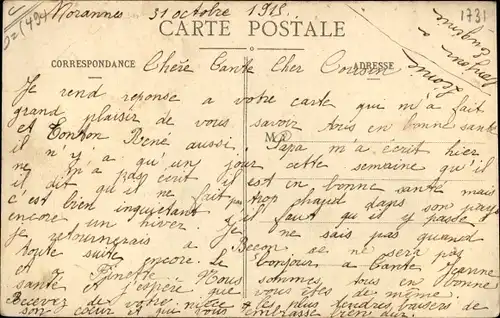 Morannes 31 octobre 1915
1731
CARTE POSTALE
CORRESPONDANCE
ADRESSE
Chère Tante Cher Cousin
Je rend reponse a votre carte que m'a fait
grand plaisir de vous savoir tous en bonne santé
et Tonton René aussi, Papa m'a ecrit hier
il n'y a qu'un jour cette semaine qu'il
ne m'a pas ecrit il est en bonne santé mais
il dit qu'il ne fait pas trop chaud dans son pays
c'est bien inquietant s'il faut qu'il y passe
encore un hiver. Je ne sais pas quand
je retournerais a Becon se ne sera pas
toute suite encore. Le bonjour a Tante Jeanne
et Ginette. Nous sommes tous en bonne
santé et j'espère que vous êtes de même.
Recevez de votre nièce les plus tendres baisers de
son coeur et qui vous embrasse bien dur.